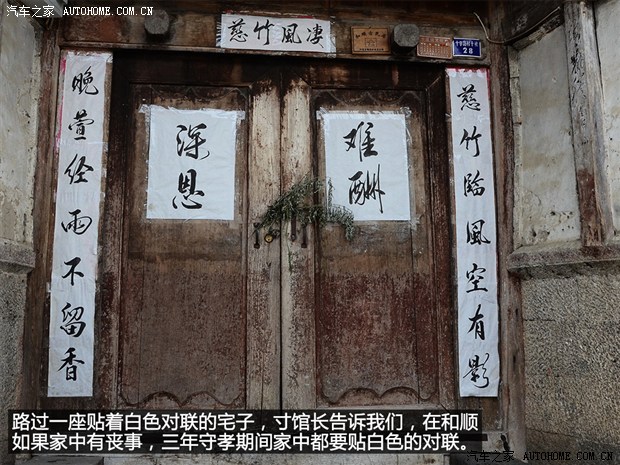 汽车之家 AUTOHOME.COM.CN
汽车之家 AUTOHOME.COM.CN
慈竹風凄
28
慈竹临風空有影
晚萱经雨不留香
深恩
难酬
路过一座贴着白色对联的宅子，寸馆长告诉我们，在和顺
如果家中有丧事，三年守孝期间家中都要贴白色的对联。
汽车之家 AUTOHOME.COM.CN
汽车之家 AUTOHOME.COM.CN